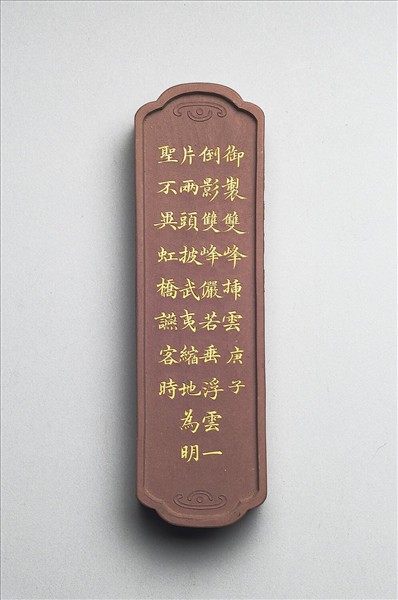 御製雙峰挿雲庚子
倒影雙峰儼若垂浮雲一
片兩頭披武夷縮地為明
聖不異虹橋讌客時